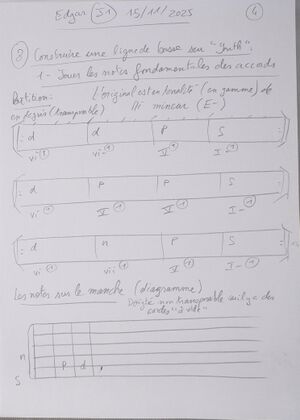 Edgar (S1) 15/11/2025 (4)
(8) Construire une ligne de basse sur "Youth":
1 - Jouer les notes fondamentales des accords
Partition: L'original est en tonalité (en gamme) de
en degrés (transposable) Mi mineur (E-)
d d P S
vi (1) vi (1) V (1) I- (1)
d P P S
vi (1) V (1) V (1) I- (1)
d n P S
vi (1) vi (1) V (1) I- (1)
Les notes sur le manche (diagramme)
Doigté non transposable s'il y a des
cordes "à vide"
n
S P d